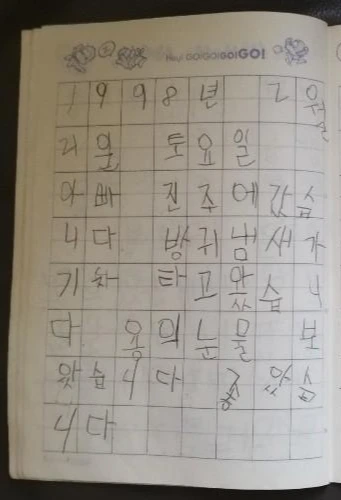 Hey! GO!GO!GO!GO!
1998년 2월
21일 토요일
아빠 진주에 갔습
니다 방귀냄새가
기차 타고 왔습니
다 용의눈물 보
왔습니다
니다